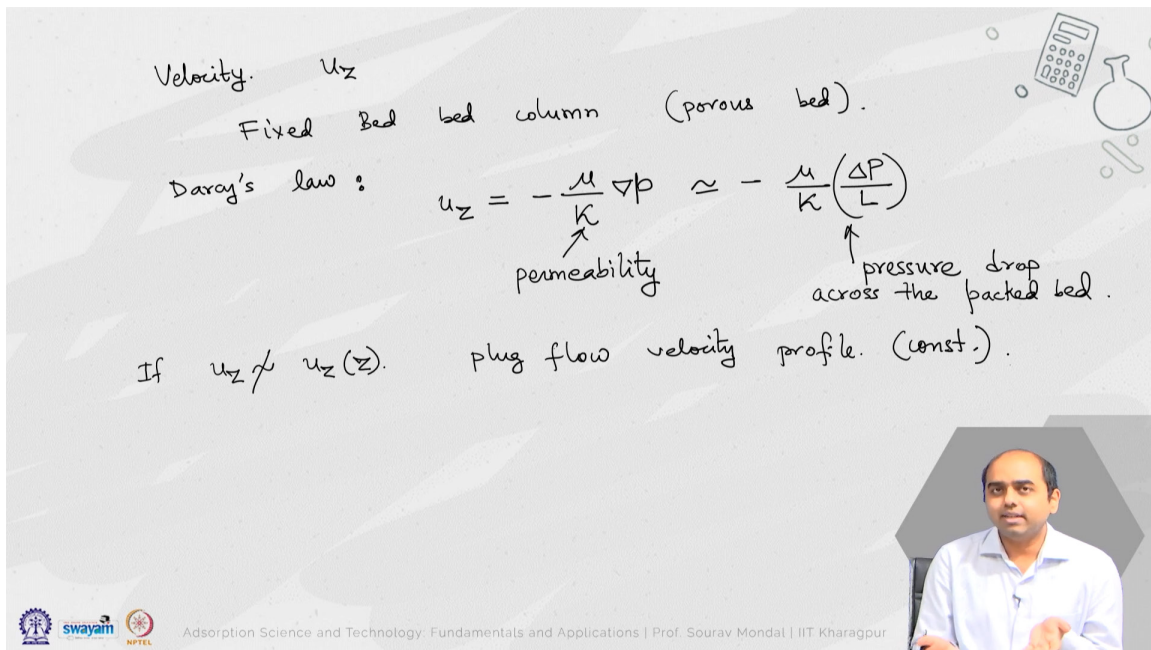 Velocity. uz
Fixed Bed bed column (porous bed).
Darcy's law : uz = - μ/K ∇p ≃ - μ/K (ΔP/L)
permeability
pressure drop
across the packed bed.
If uz ≁ uz (z). plug flow velocity profile. (const.).
swayam
NPTEL
Adsorption Science and Technology: Fundamentals and Applications | Prof. Sourav Mondal | IIT Kharagpur